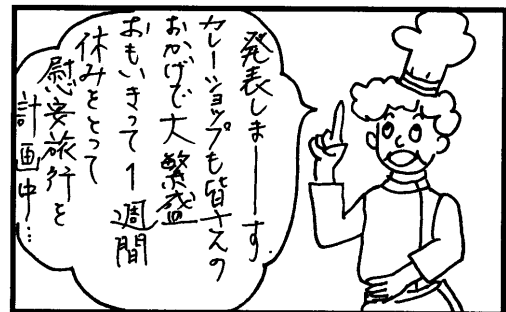 発表しま――す.
カレーショップも皆さんの
おかげで大繁盛
おもいきって1週間
休みをとって
慰安旅行を
計画中…